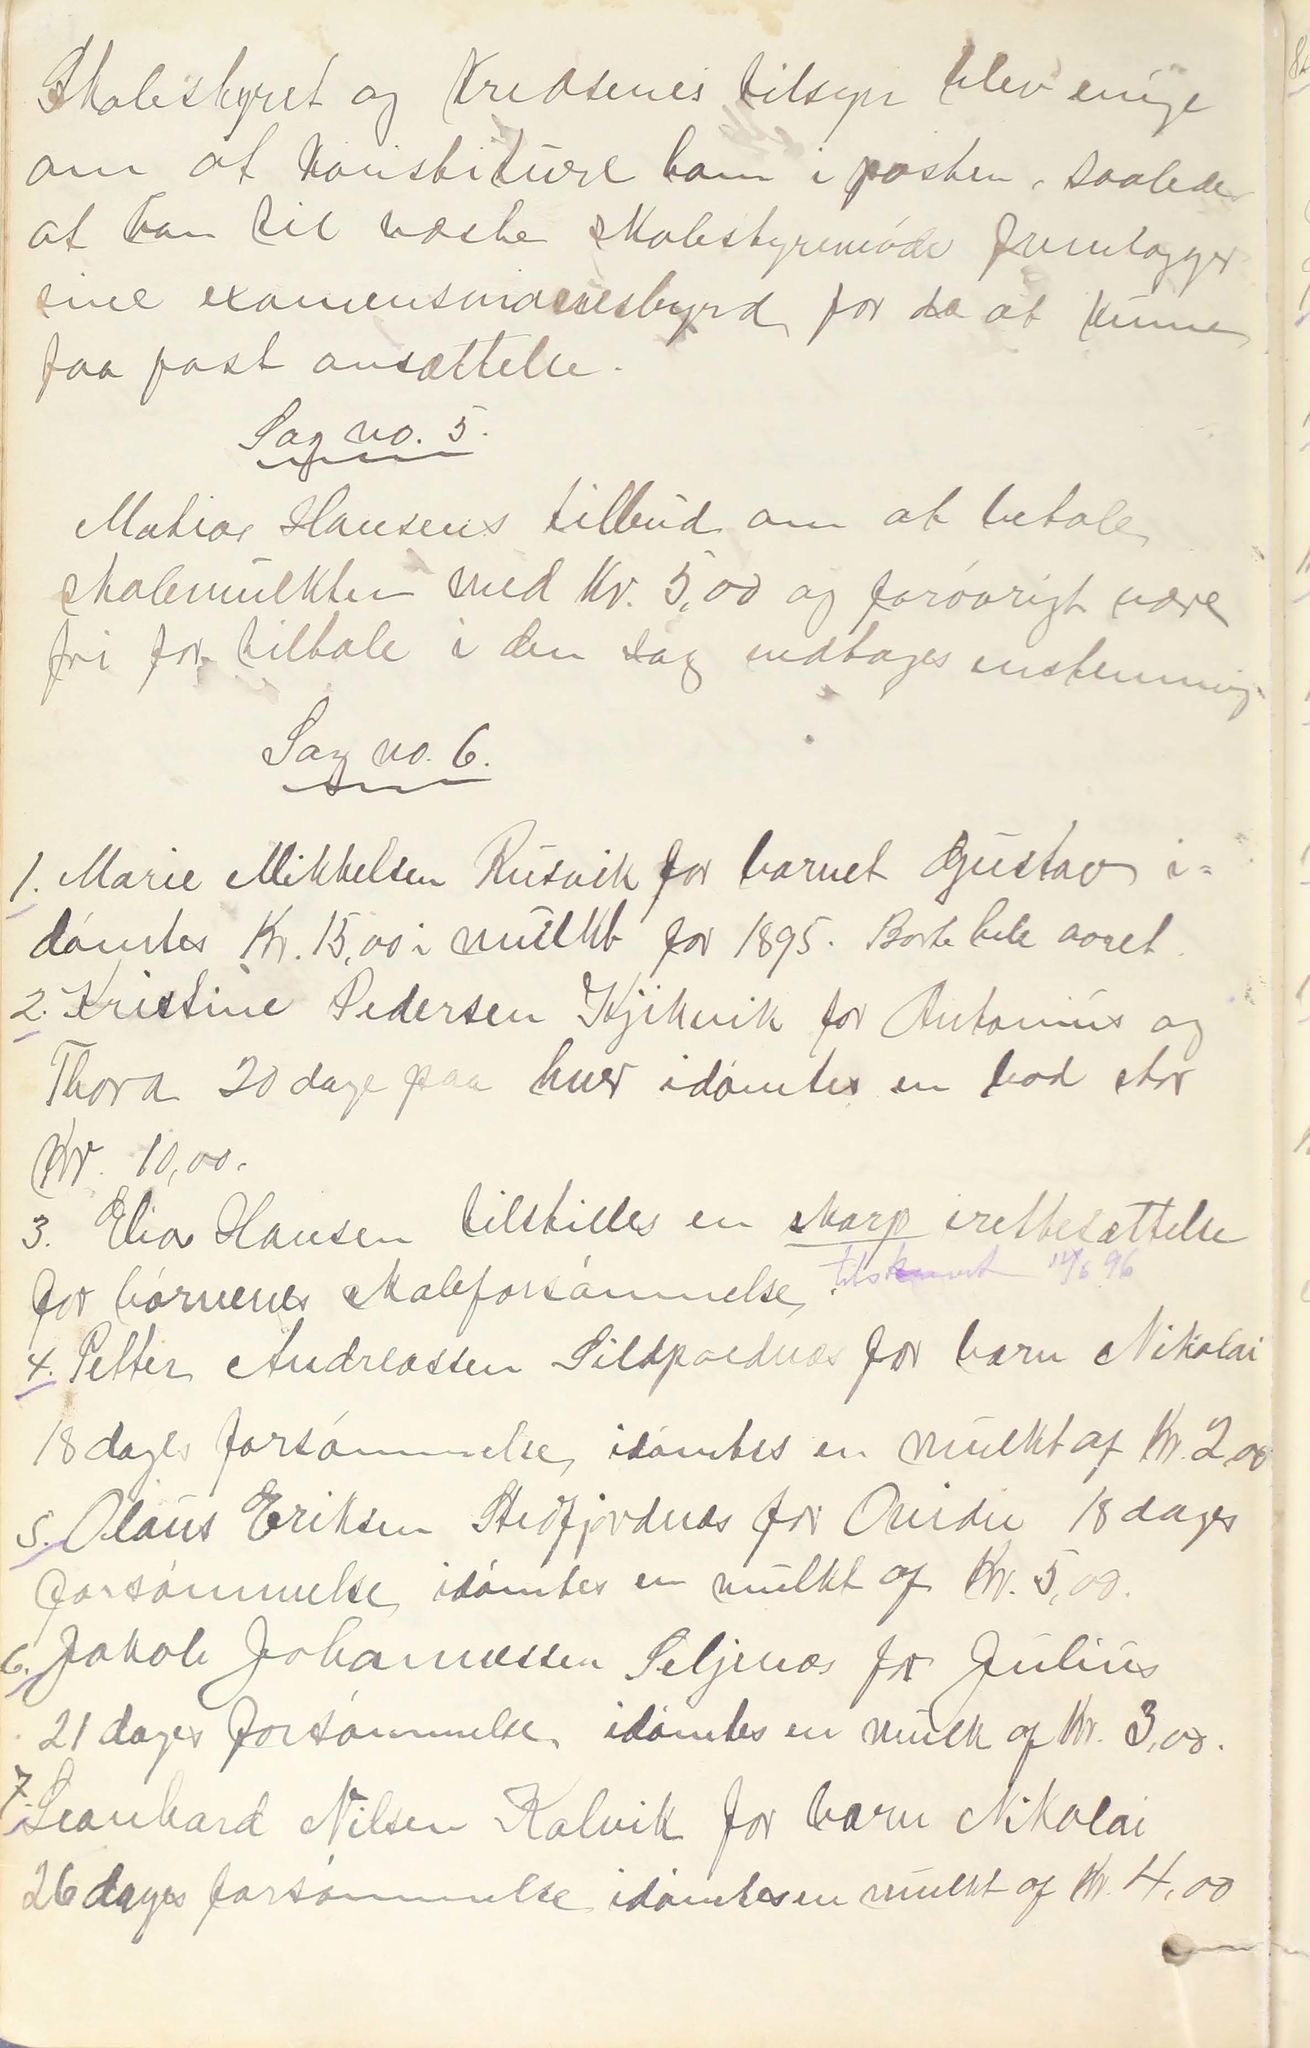 Skolestyret og Kredsenes tilsyn blev enige
om at konstituere ham i posten, saaledes
at han til næste skolestyremøde fremlægger
sine examensvidnesbyrd for da at kunne
faa fast ansættelse.
Sag no. 5.
Matias Hansens tilbud om at betale
skolemulkten med Kr. 5,00 og forøvrigt være
fri for tiltale i den sag vedtages enstemmig
Sag no. 6.
1. Marie Mikkelsen Rusvik for barnet Gustav i-
dømtes Kr. 15,00 i mulkt for 1895. Borte hele aaret.
2. Kristine Pedersen Kjikvik for Antonius og
Thora 20 dage paa hver idømtes en bod stor
Kr. 10,00.
3. Elias Hansen tilstilles en skarp irettesættelse
for børnenes skoleforsømmelse. tilskrevet 12/6 96
4. Petter Andreassen Sildpoldnæs for barn Nikolai
18 dages forsømmelse idømtes en mulkt af Kr. 2,00
5. Olaus Eriksen Stedfjordnæs for 18 dages
forsømmelse idømtes en mulkt af Kr. 5,00.
6. Jakob Johannessen Seljenæs for Julius
21 dages forsømmelse idømtes en mulk af Kr. 3,00.
7. Leonhard Nilsen Kalvik for barn Nikolai
26 dages forsømmelse idømtes en mulkt af Kr. 4,00